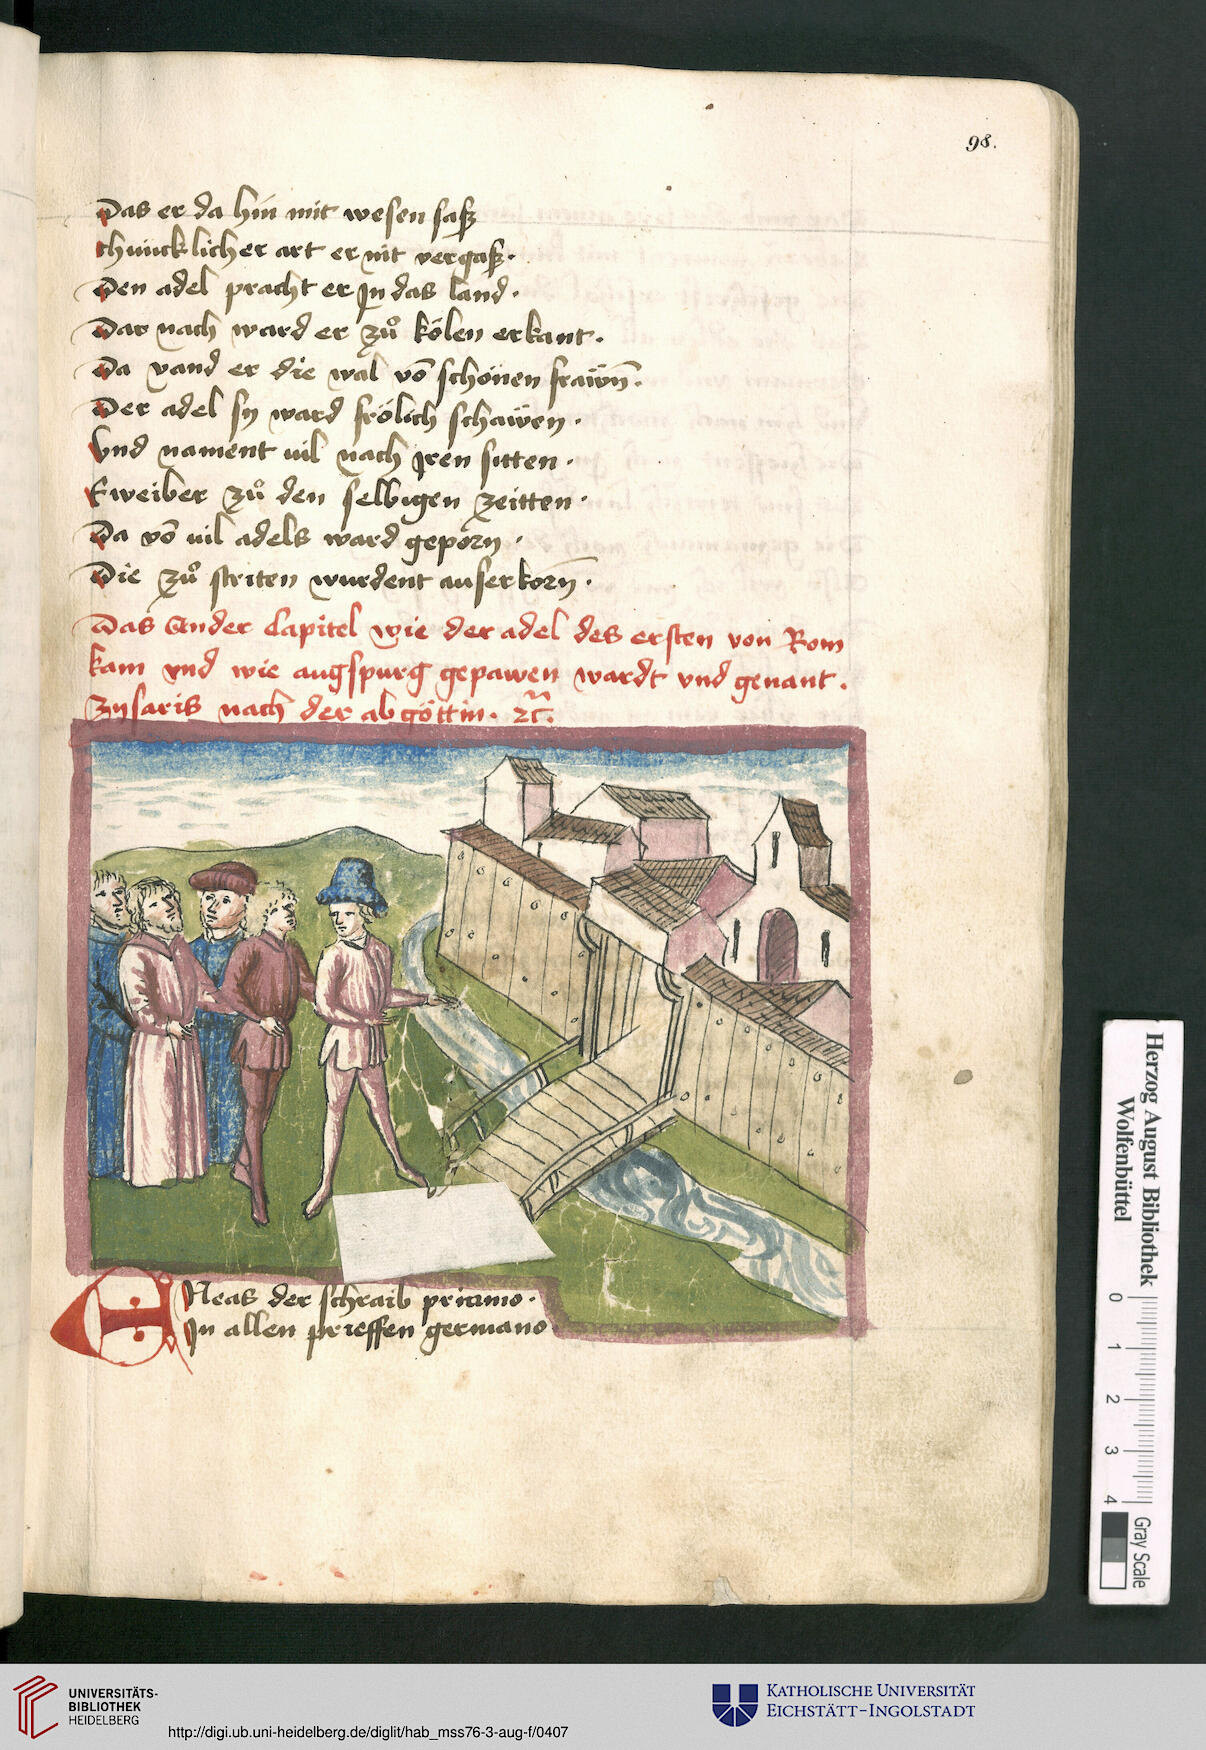 98.
Das er da hin mit wesen saß
chüncklicher art er nit vergaß.
Den adel pracht er In das land.
Dar nach ward er zuͦ kölen erkant.
Da vand er die wal vō schönen frawn̄.
Der adel sy ward frölich schawen.
Vnd nament uil nach Iren sitten.
Eweiber zuͦ den selbigen zeitten.
Da vō uil adels ward geporn.
Die zuͦ striten wurdent auserkorn̄.
Das Ander Capitel wie der adel des ersten von Rom
kam vnd wie augspurg gepawen wardt vnd genant.
Zysaris nach der abgöttin. ꝛc̄.
ENeas der schraib priamo.
In allen prieffen germano
Herzog August Bibliothek
Wolfenbüttel
0 1 2 3 4
Gray Scale
UNIVERSITÄTS-
BIBLIOTHEK
HEIDELBERG
http://digi.ub.uni-heidelberg.de/diglit/hab_mss76-3-aug-f/0407
KATHOLISCHE UNIVERSITÄT
EICHSTÄTT-INGOLSTADT